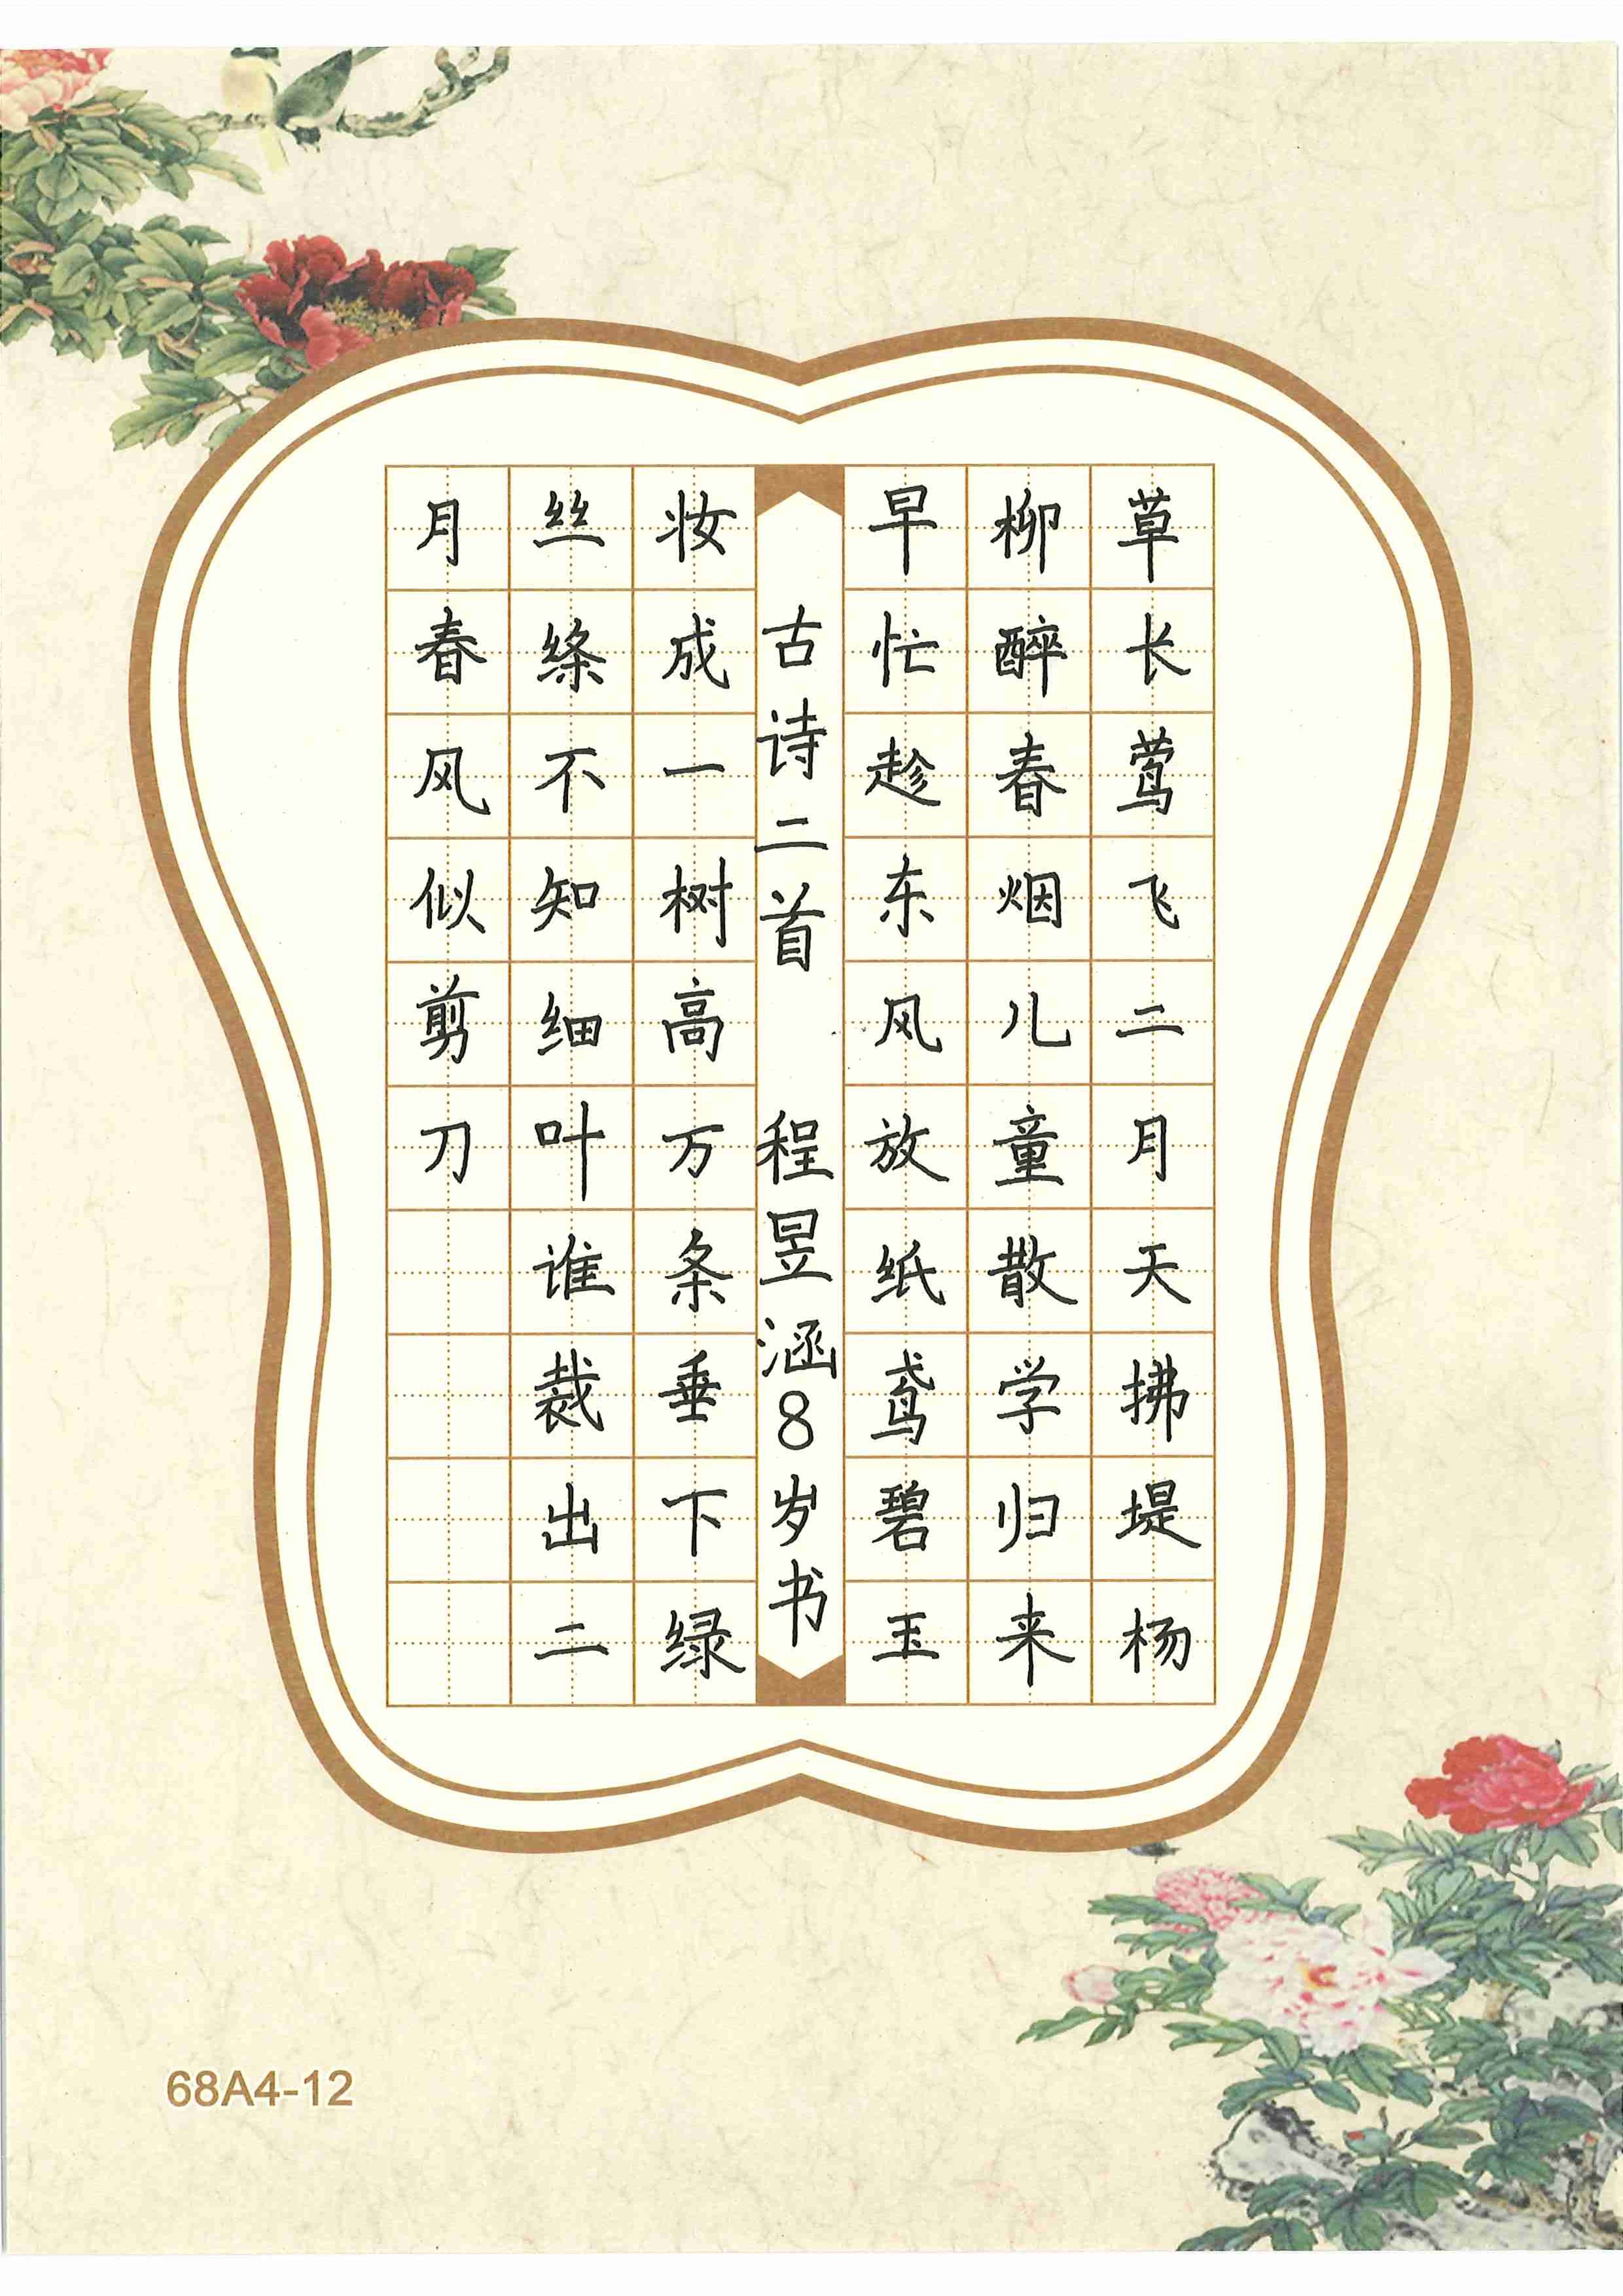 草长莺飞二月天拂堤杨
柳醉春烟儿童散学归来
早忙趁东风放纸鸢碧玉
古诗二首 程昱涵8岁书
妆成一树高万条垂下绿
丝绦不知细叶谁裁出二
月春风似剪刀
68A4-12